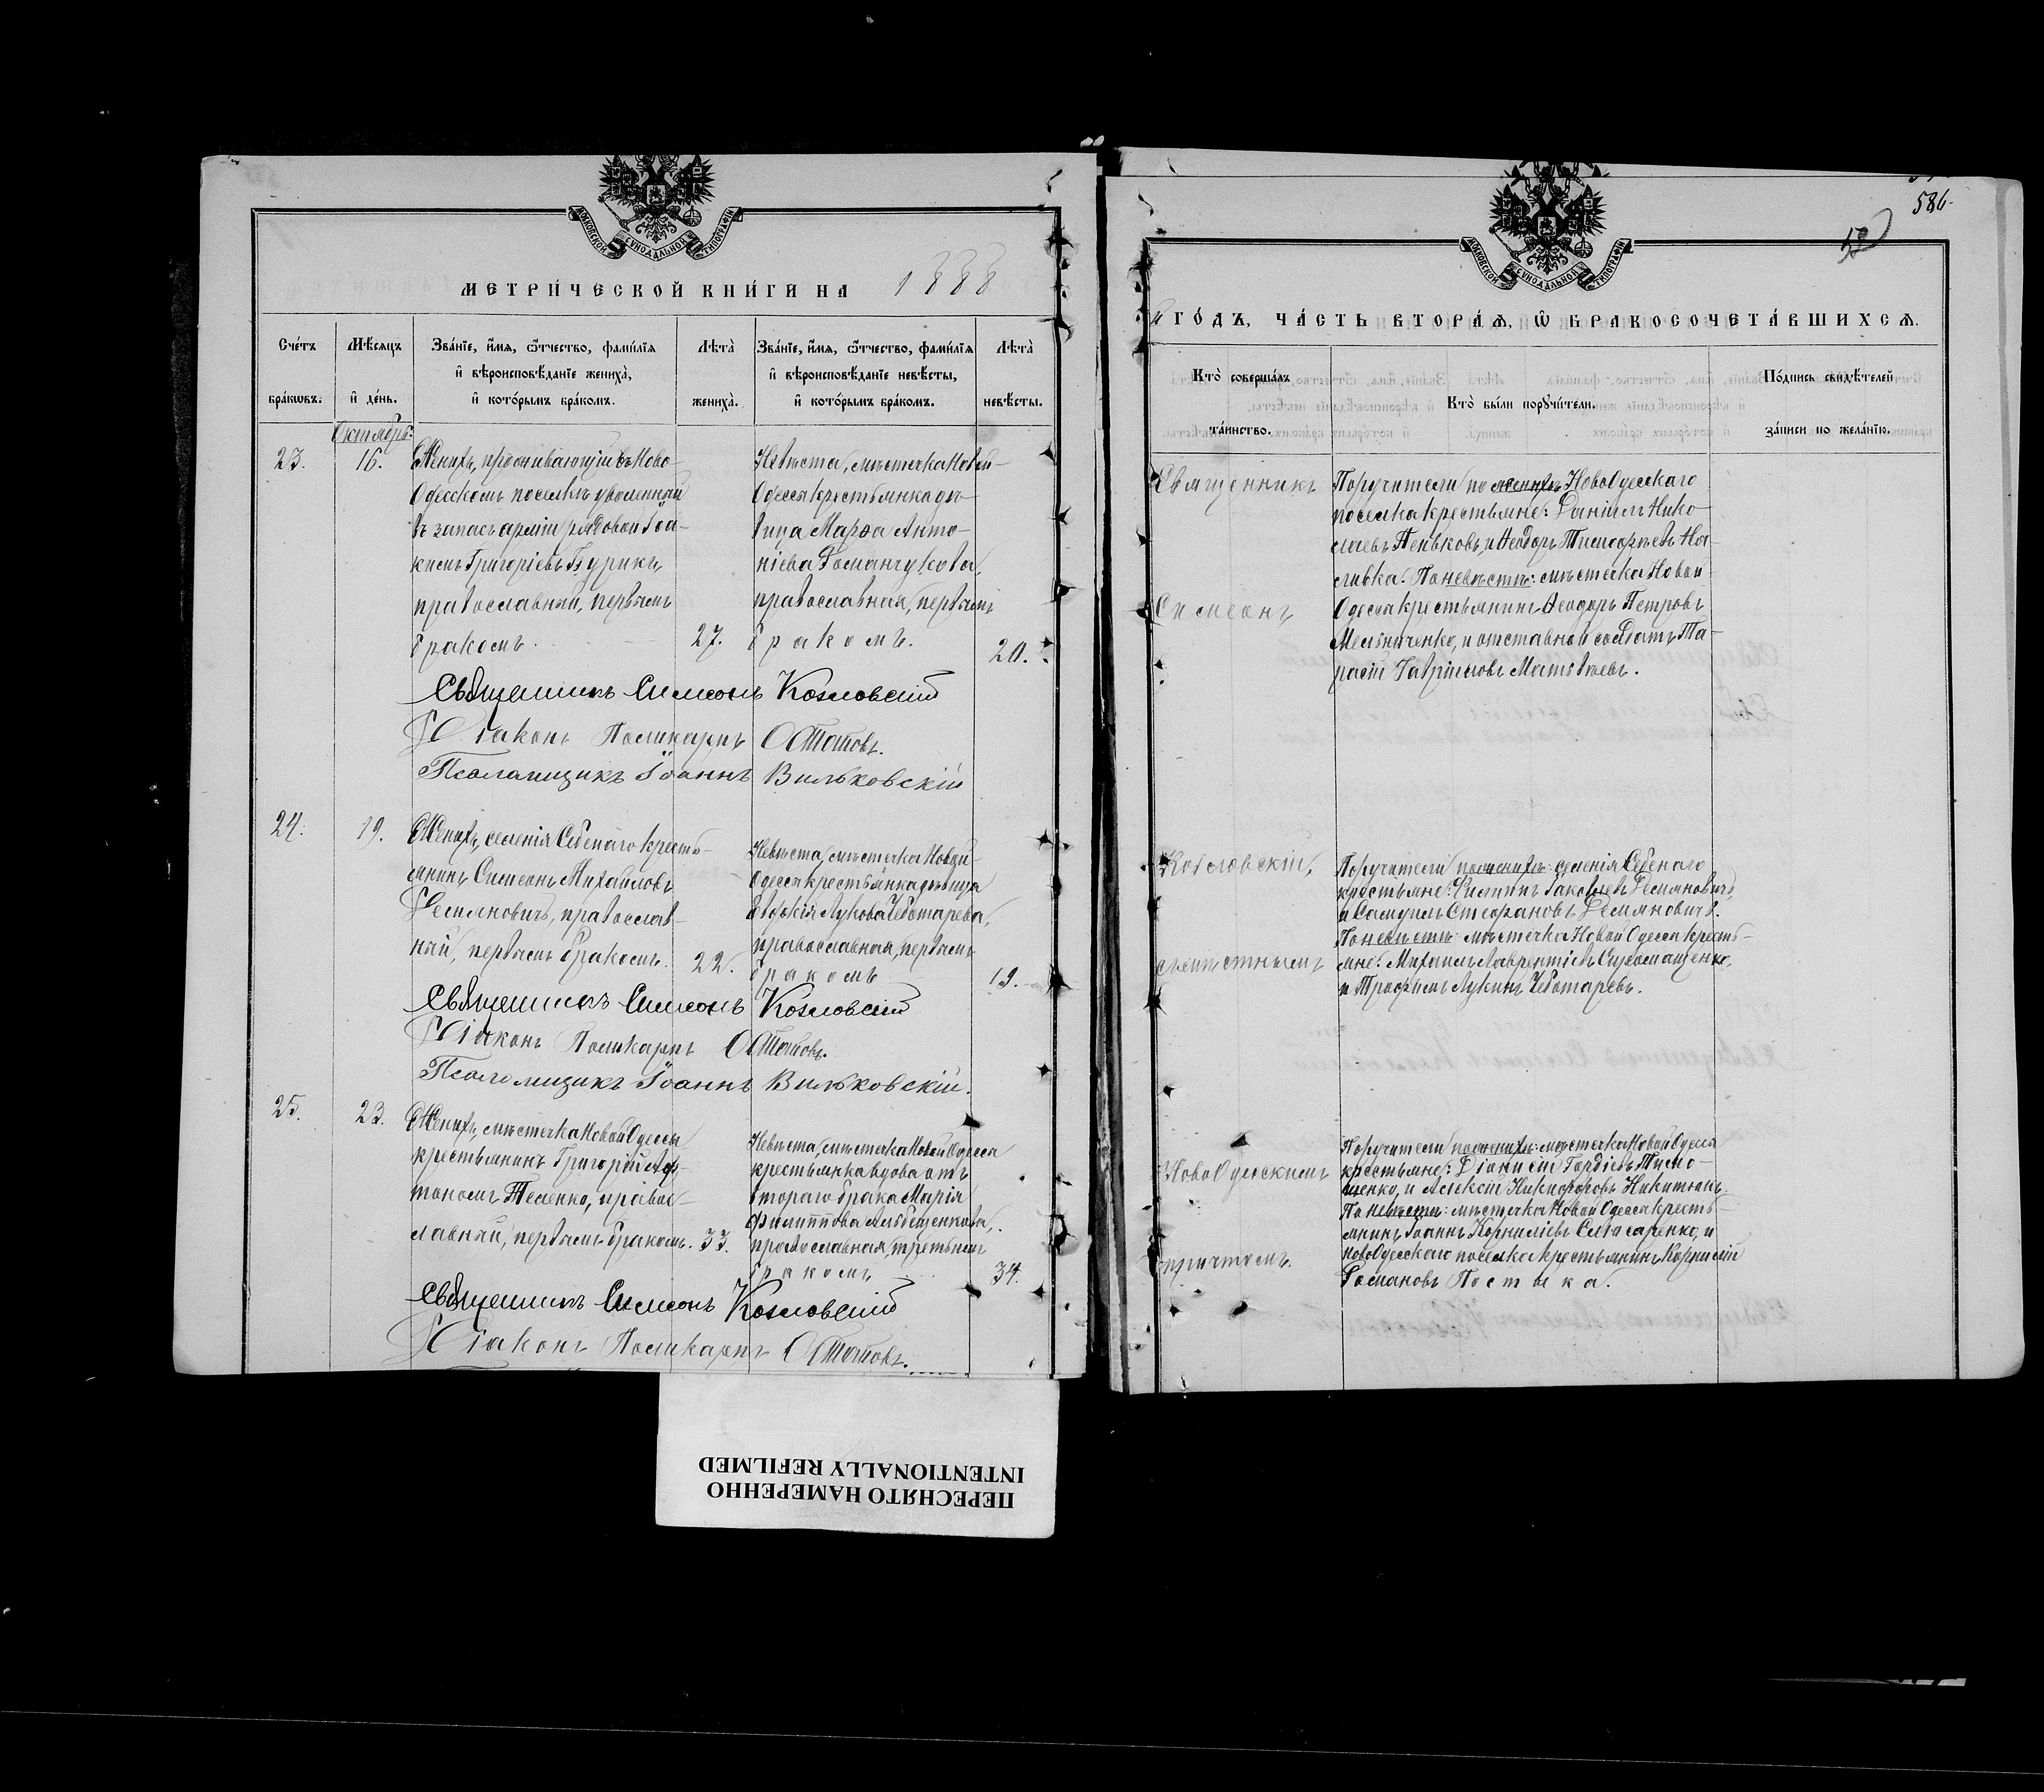 МОСКОВСКОЙ СУНОДАЛЬНОЙ ТИПОГРАФІИ
МЕТРИ́ЧЕСКОЙ КНИ́ГИ НА 1888
Сче́тъ бра́кωвъ.
Мѣ́сяцъ и҆ де́нь.
Зва́нїе, и҆́мя, ѻ҆́тчество, фами́лїя
и҆ вѣроисповѣ́данїе жениха̀,
и҆ кото́рымъ бра́комъ.
Лѣта̀ жениха̀.
Зва́нїе, и҆́мя, ѻ҆́тчество, фами́лїя
и҆ вѣроисповѣ́данїе невѣ́сты,
и҆ кото́рымъ бра́комъ.
Лѣта̀ невѣ́сты.
Октябрь.
23.
16.
Женихъ, проживающій въ Ново-
Одесскомъ поселкѣ уволенный
въ запасъ арміи рядовой Іоа-
кимъ Григоріевъ Бурикъ,
православный, первымъ
бракомъ.
27.
Невѣста, мѣстечка Новой-
Одессы крестьянка дѣ-
вица Марѳа Анто-
ніева Романчукова,
православная, первымъ
бракомъ.
20.
Священникъ Симеонъ Козловскій
Діаконъ Поликарпъ
Псаломщикъ Іоаннъ Вильковскій
24.
19.
Женихъ, селенія Себенаго кресть-
янинъ Симеонъ Михайловъ
Демяновичъ, православ-
ный, первымъ бракомъ.
22.
Невѣста, мѣстечка Новой-
Одессы крестьянка дѣвица
Евфимія Лукова Чеботарева,
православная, первымъ
бракомъ
19.
Священникъ Симеонъ Козловскій
Діаконъ Поликарпъ
Псаломщикъ Іоаннъ Вильковскій.
25.
23.
Женихъ, мѣстечка Новой Одессы
крестьянинъ Григорій
Теленко, правос-
лавный, первымъ бракомъ.
33.
Невѣста, мѣстечка Новой Одессы
крестьянка вдова отъ
втораго брака Марія
Филиппова
православная, третьимъ
бракомъ
34.
Священникъ Симеонъ Козловскій
Діаконъ Поликарпъ
586.
МОСКОВСКОЙ СУНОДАЛЬНОЙ ТИПОГРАФІИ
ГО́ДЪ, ЧА́СТЬ ВТОРА́Я, Ѡ҆ БРАКОСОЧЕТА́ВШИХСЯ.
Кто̀ соверша́лъ та́инство.
Кто̀ бы́ли порꙋчи́тели.
По́дпись свидѣ́телей
за́писи по жела́нїю.
Священникъ
Симеонъ
Козловскій,
съ мѣстнымъ
Новоодесскимъ
причтомъ.
Поручители по женихѣ: Новоодесскаго
поселка крестьяне: Даніилъ Нико-
лаевъ Пеньковъ, и Ѳеодоръ Тимофеевъ На-
ливка. По невѣстѣ: мѣстечка Новой
Одессы крестьянинъ Ѳеодоръ Петровъ
Мельниченко, и отставной солдатъ Та-
расій Гавриловъ Матвѣевъ.
Поручители по женихѣ: селенія Себенаго
крестьяне: Филиппъ Іаковлевъ Демяновичъ,
и Самуилъ Стефановъ Демяновичъ.
По невѣстѣ: мѣстечка Новой Одессы кресть-
яне: Михаилъ Лаврентіевъ Сыромащенко,
и Трофимъ Лукинъ Чеботаревъ.
Поручители по женихѣ: мѣстечка Новой Одессы
крестьяне: Діонисій Гордіевъ Тимо-
щенко, и Алексѣй Никифоровъ Никитюкъ.
По невѣстѣ: мѣстечка Новой Одессы кресть-
янинъ Іоаннъ Корниліевъ и
Новоодесскаго поселка крестьянинъ Корнилій
Романовъ Постыка.
ПЕРЕСНЯТО НАМЕРЕННО
INTENTIONALLY REFILMED